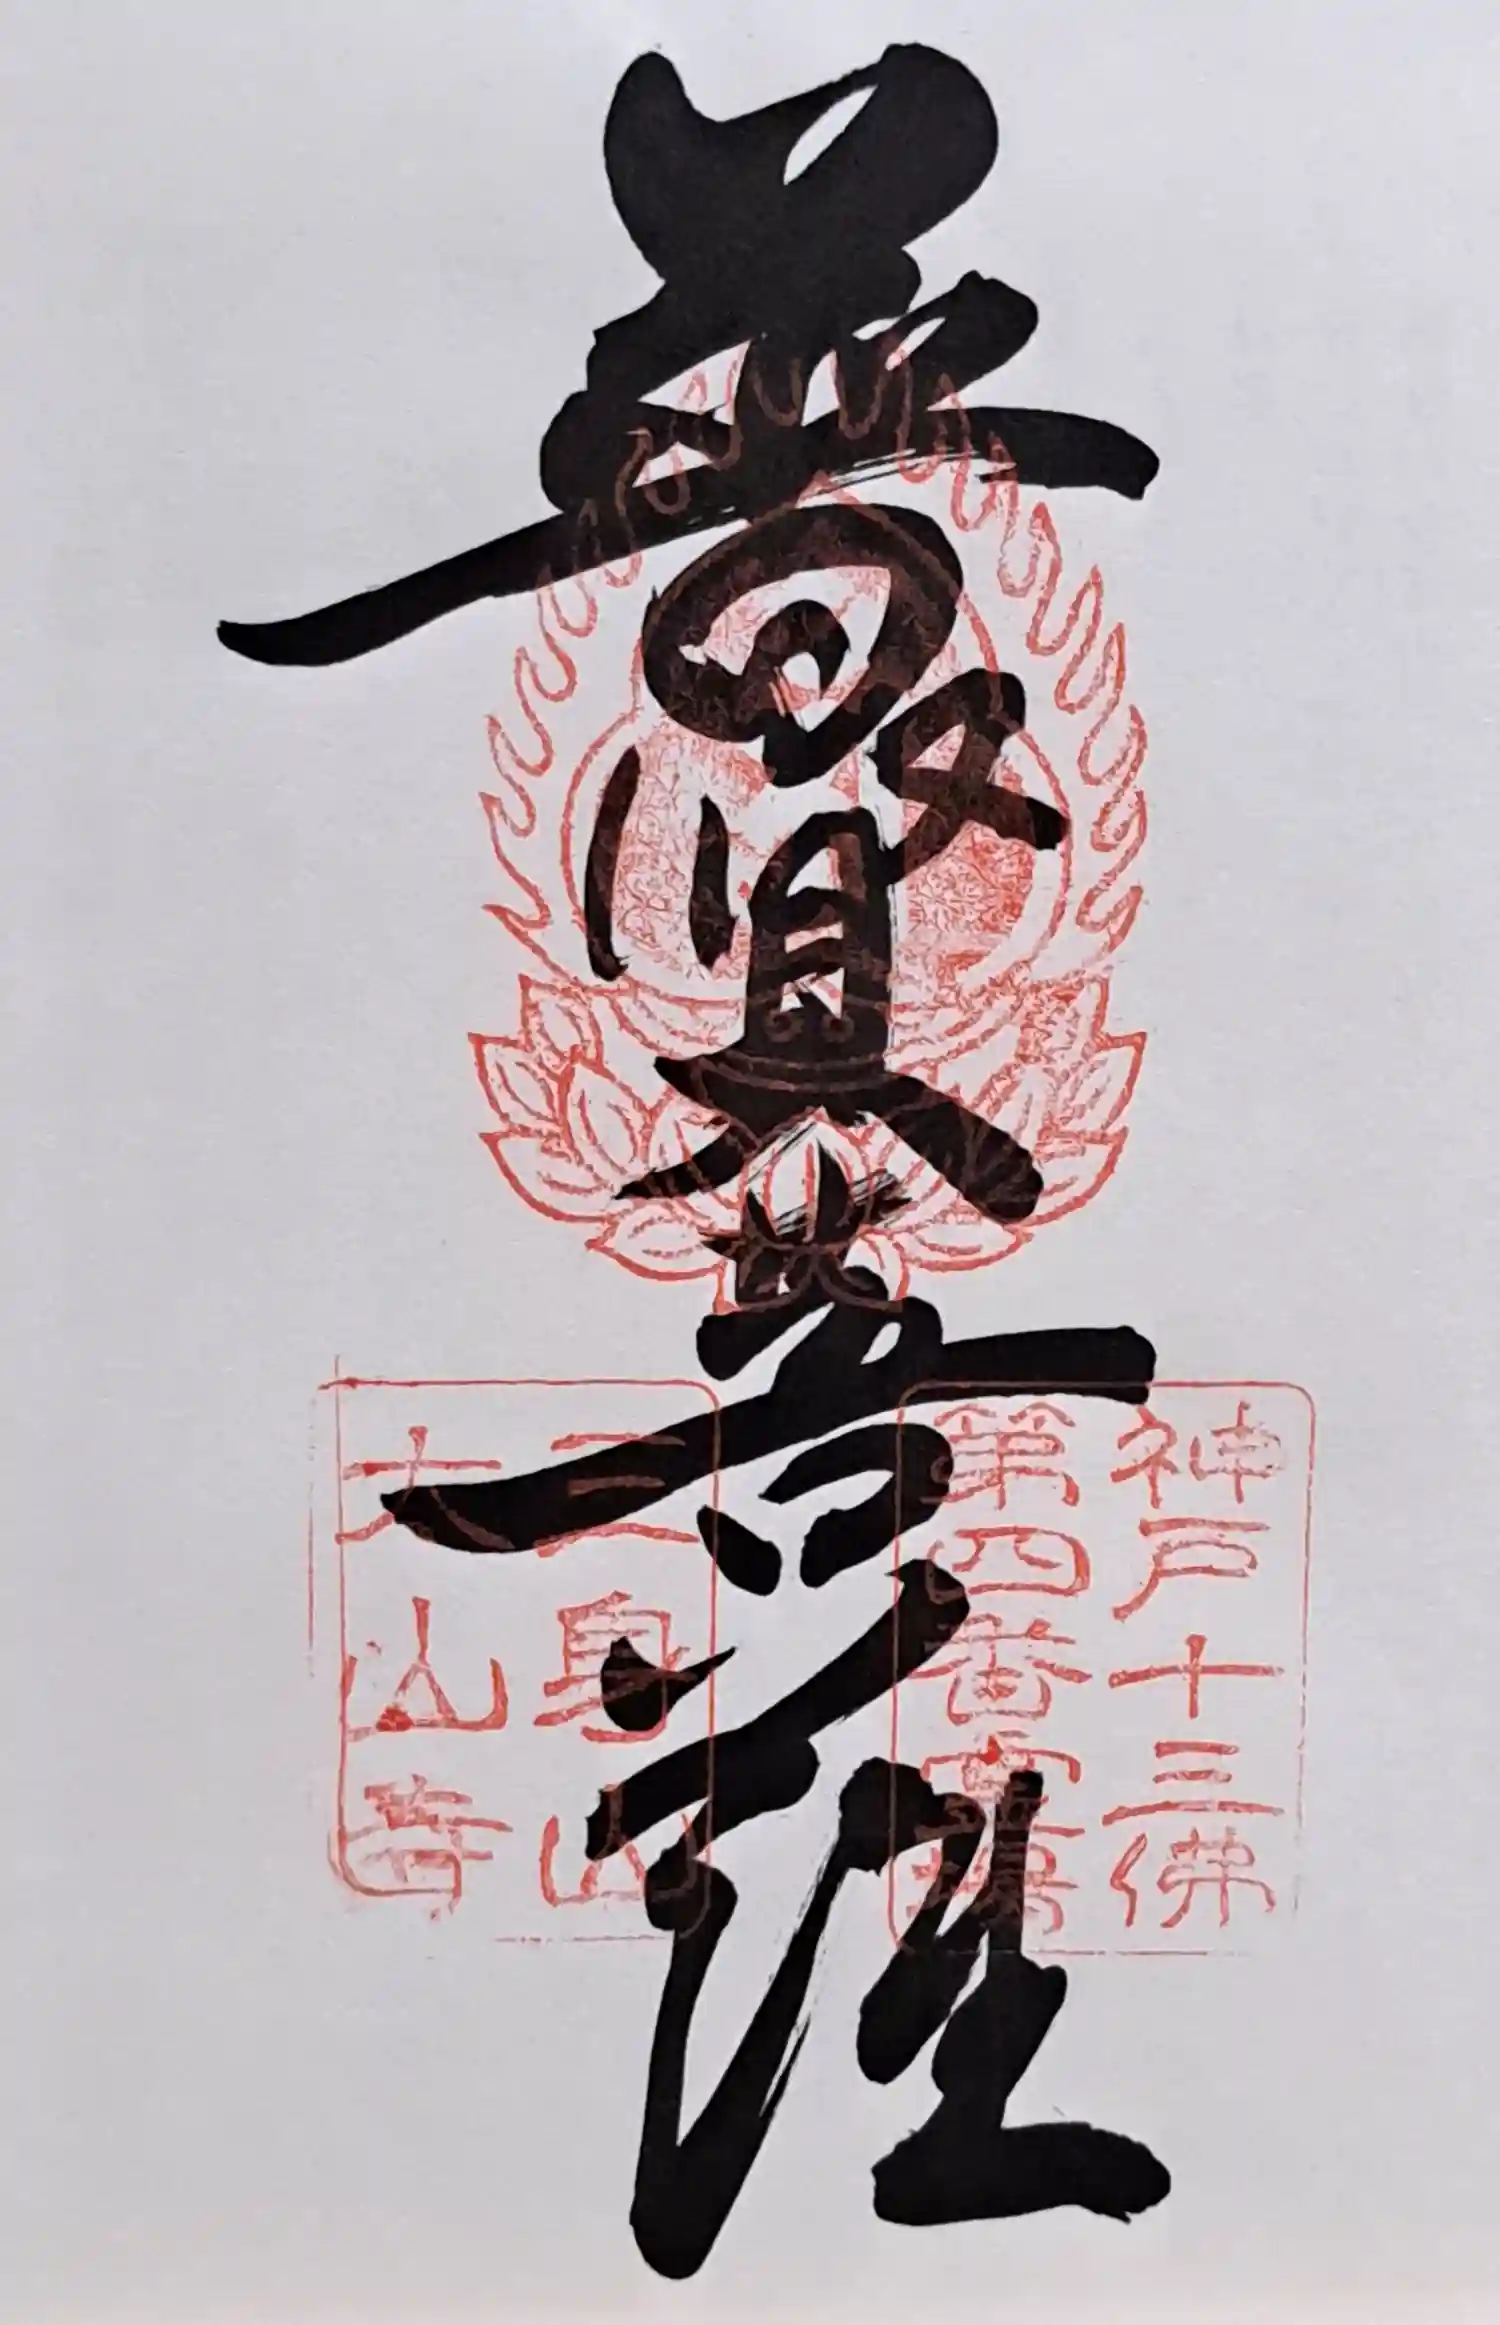 普賢菩薩
神戸十三佛
第四番霊場
三身山
太山寺